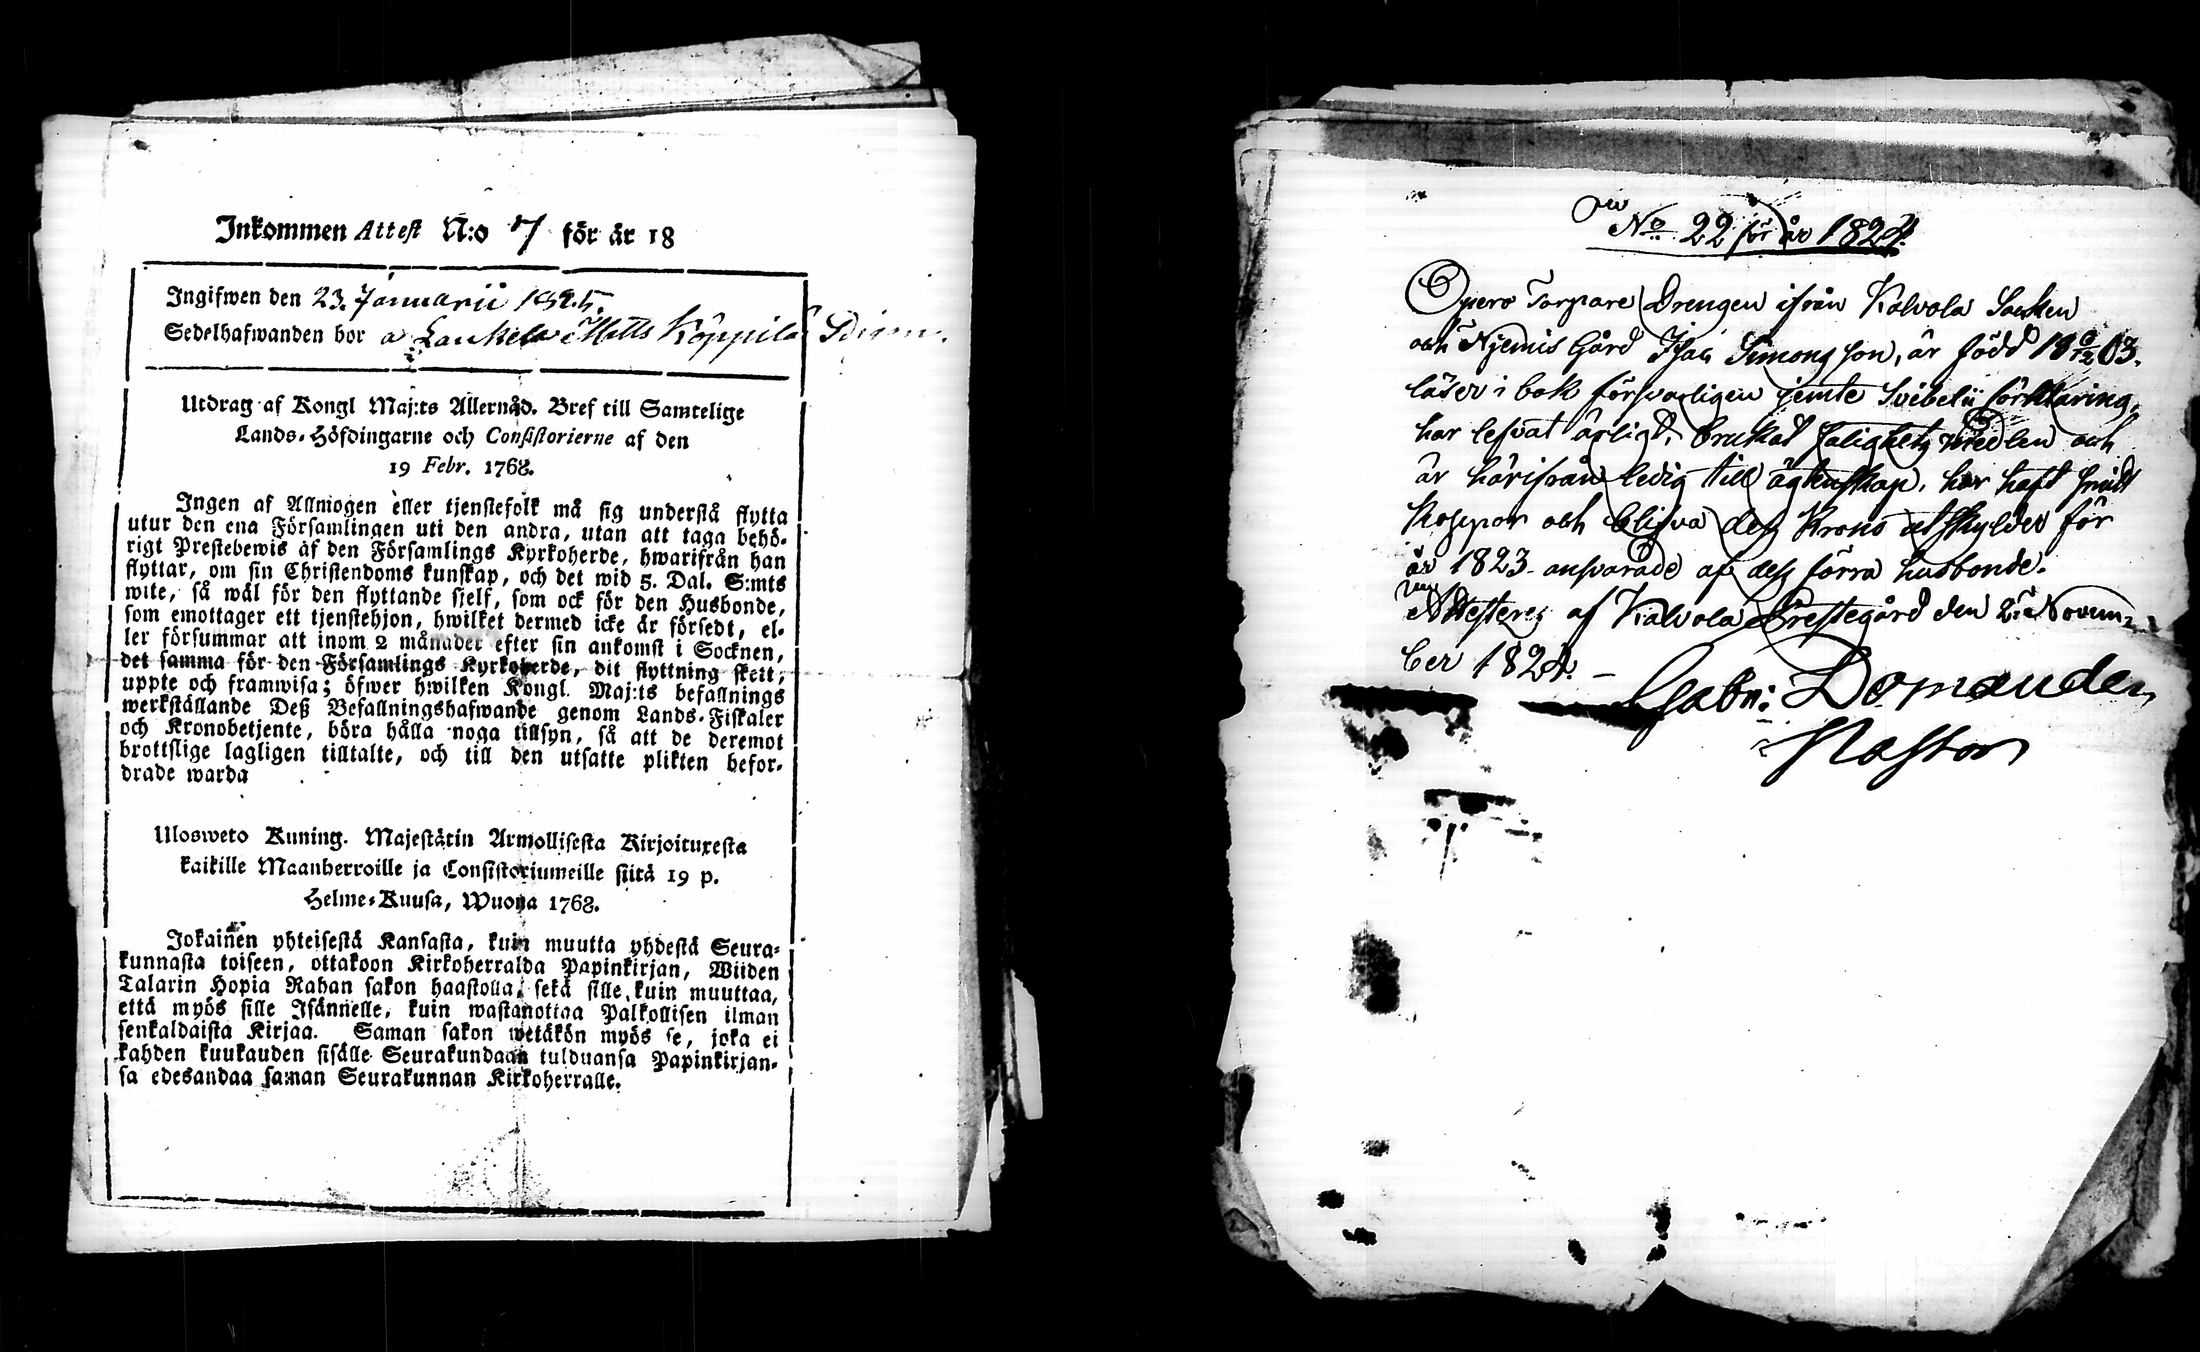 Inkommen Attest N:o 7 för år 18
Ingifwen den 23. Januarii 1825.
Sedelhafwanden bor a Laukela Matts Köppilä
Utdrag af Kongl Maj:ts Allernåd. Bref till Samtelige
Lands-Höfdingarne och Consistorierne af den
19 Febr. 1768.
Ingen af Allmogen eller tjenstefolk må sig understå flytta
utur den ena Församlingen uti den andra, utan att taga behö-
rigt Prestebewis af den Församlings Kyrkoherde, hwarifrån han
flyttar, om sin Christendoms kunskap, och det wid 5. Dal. S:mts
wite, så wäl för den flyttande sjelf, som ock för den Husbonde,
som emottager ett tjenstehjon, hwilket dermed icke är försedt, el-
ler försummar att inom 2 månader efter sin ankomst i Socknen,
det samma för den Församlings Kyrkoherde, dit flyttning skett,
uppte och framwisa; öfwer hwilken Kongl. Maj:ts befallnings
werkställande Deß Befallningshafwande genom Lands-Fiskaler
och Kronobetjente, böra hålla noga tillsyn, så att de deremot
brottslige lagligen tilltalte, och till den utsatte plikten befor-
drade warda
Ulosweto Kuning. Majestätin Armollisesta Kirjoituxesta
kaikille Maanherroille ja Consistoriumeille siitä 19 p.
Helme-Kuusa, Wuonna 1768.
Jokainen yhteisestä Kansasta, kuin muutta yhdestä Seura-
kunnasta toiseen, ottakoon Kirkoherralda Papinkirjan, Wiiden
Talarin Hopia Rahan sakon haastolla, sekä sille, kuin muuttaa,
että myös sille Isännelle, kuin wastanottaa Palkollisen ilman
senkaldaista Kirjaa. Saman sakon wetäkön myös se, joka ei
kahden kuukauden sisälle Seurakundaan tulduansa Papinkirjan-
sa edesandaa saman Seurakunnan Kirkoherralle.
No 22 för år 1824.
Torpare Drengen ifrån Kalvola Socken
och Niemis Gård Isac Simonsson, är född 18 9/12 03.
läser i bok försvarligen jemte Svebelii förklaring,
har lefvat ärligt, brukat salighets medlen och
är härifrån ledig till ägtenskap, har haft
Koppor och blifva des Krono utskylder för
år 1823 ansvarade af des förra husbonde.
Attesteras af Kalvola Prestegård den 2. Novem-
ber 1824.
Gabr:
Pastor